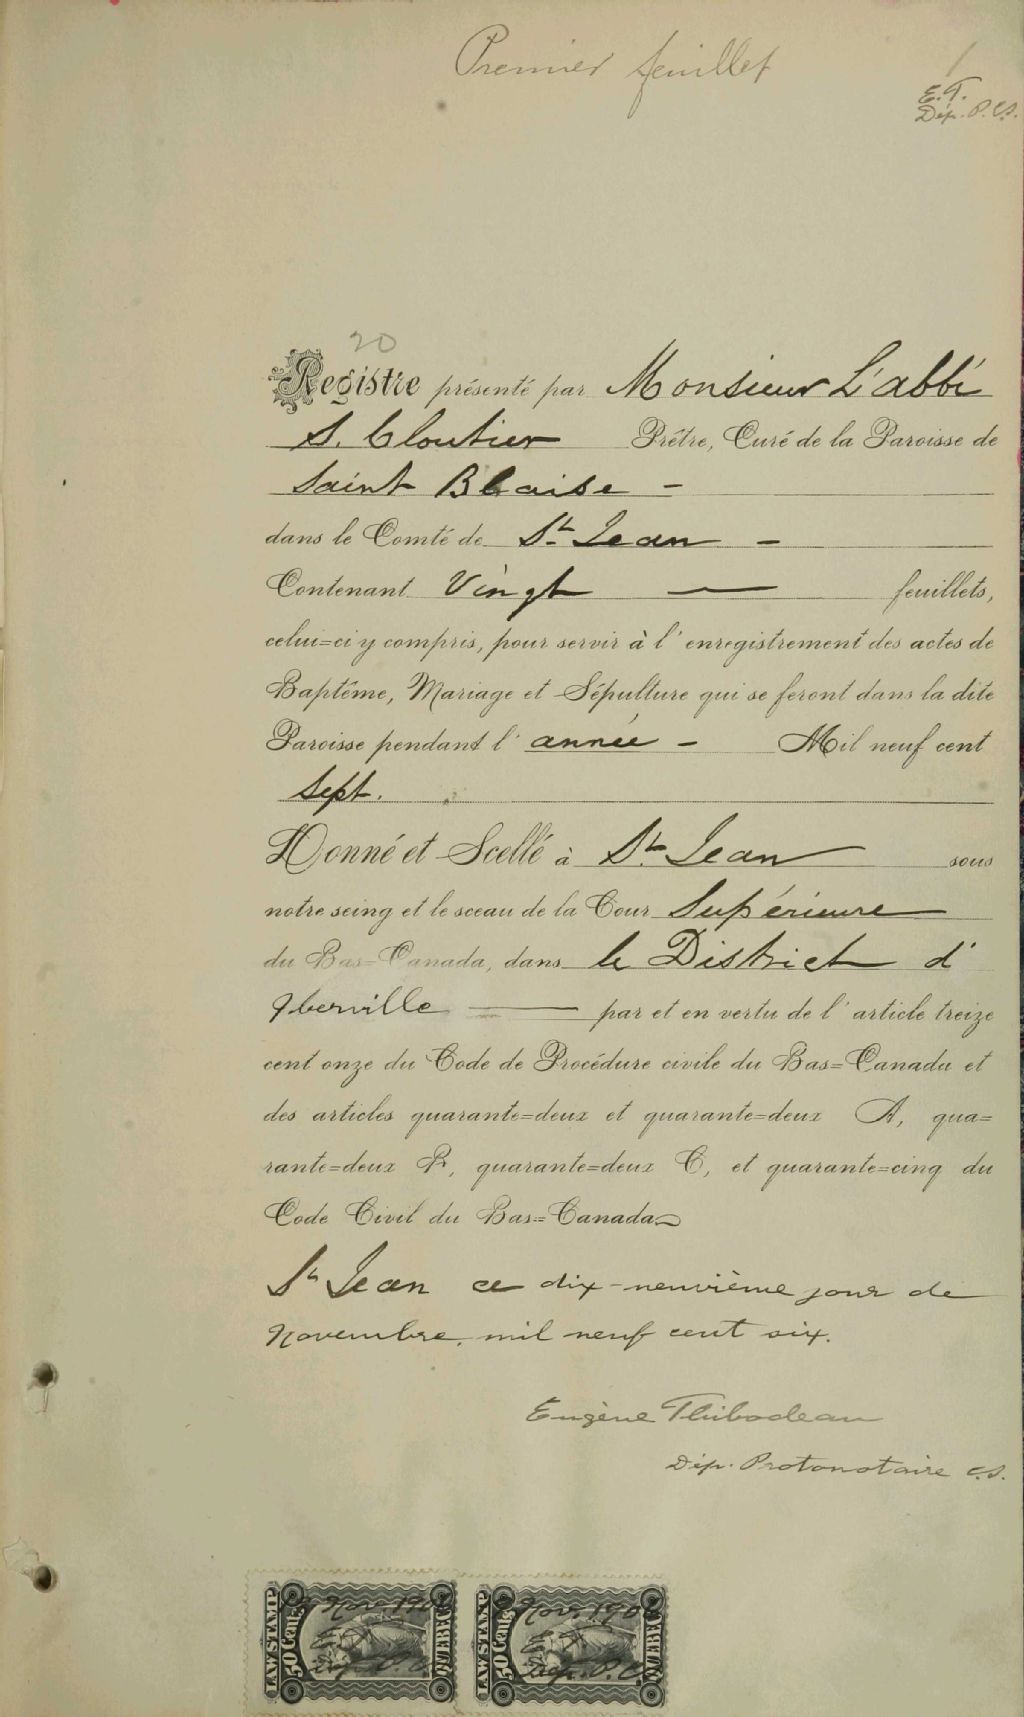 Premier feuillet
1
E. T.
Dép. P. C.S.
20
Registre présenté par Monsieur L'abbé
S. Cloutier Prêtre, Curé de la Paroisse de
Saint Blaise -
dans le Comté de St. Jean -
Contenant Vingt — feuillets,
celui=ci y compris, pour servir à l'enregistrement des actes de
Baptême, Mariage et Sépulture qui se feront dans la dite
Paroisse pendant l'année - Mil neuf cent
Sept.
Donné et Scellé à St. Jean sous
notre seing et le sceau de la Cour Supérieure
du Bas=Canada, dans le District d'
Iberville — par et en vertu de l'article treize
cent onze du Code de Procédure civile du Bas=Canada et
des articles quarante=deux et quarante=deux A, qua=
rante=deux B, quarante=deux C, et quarante=cinq du
Code Civil du Bas=Canada
St Jean ce dix-neuvième jour de
Novembre, mil neuf cent six.
Eugène Thibodeau
Dép. Protonotaire C.S.
LAW STAMP 50 Cents QUEBEC
Nov. 1906
E. T.
Dép. P. C.
LAW STAMP 50 Cents QUEBEC
Nov. 1906
E. T.
Dép. P. C.